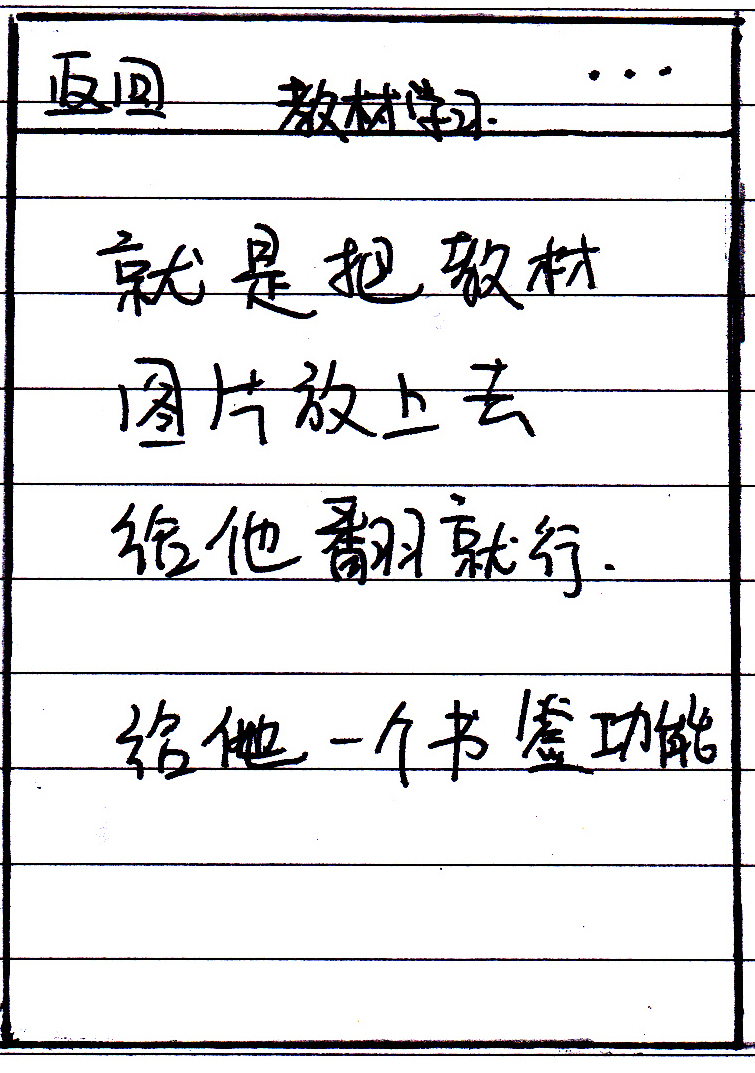 返回 教材学习. ...
就是把教材
图片放上去
给他翻就行.
给他一个书签功能